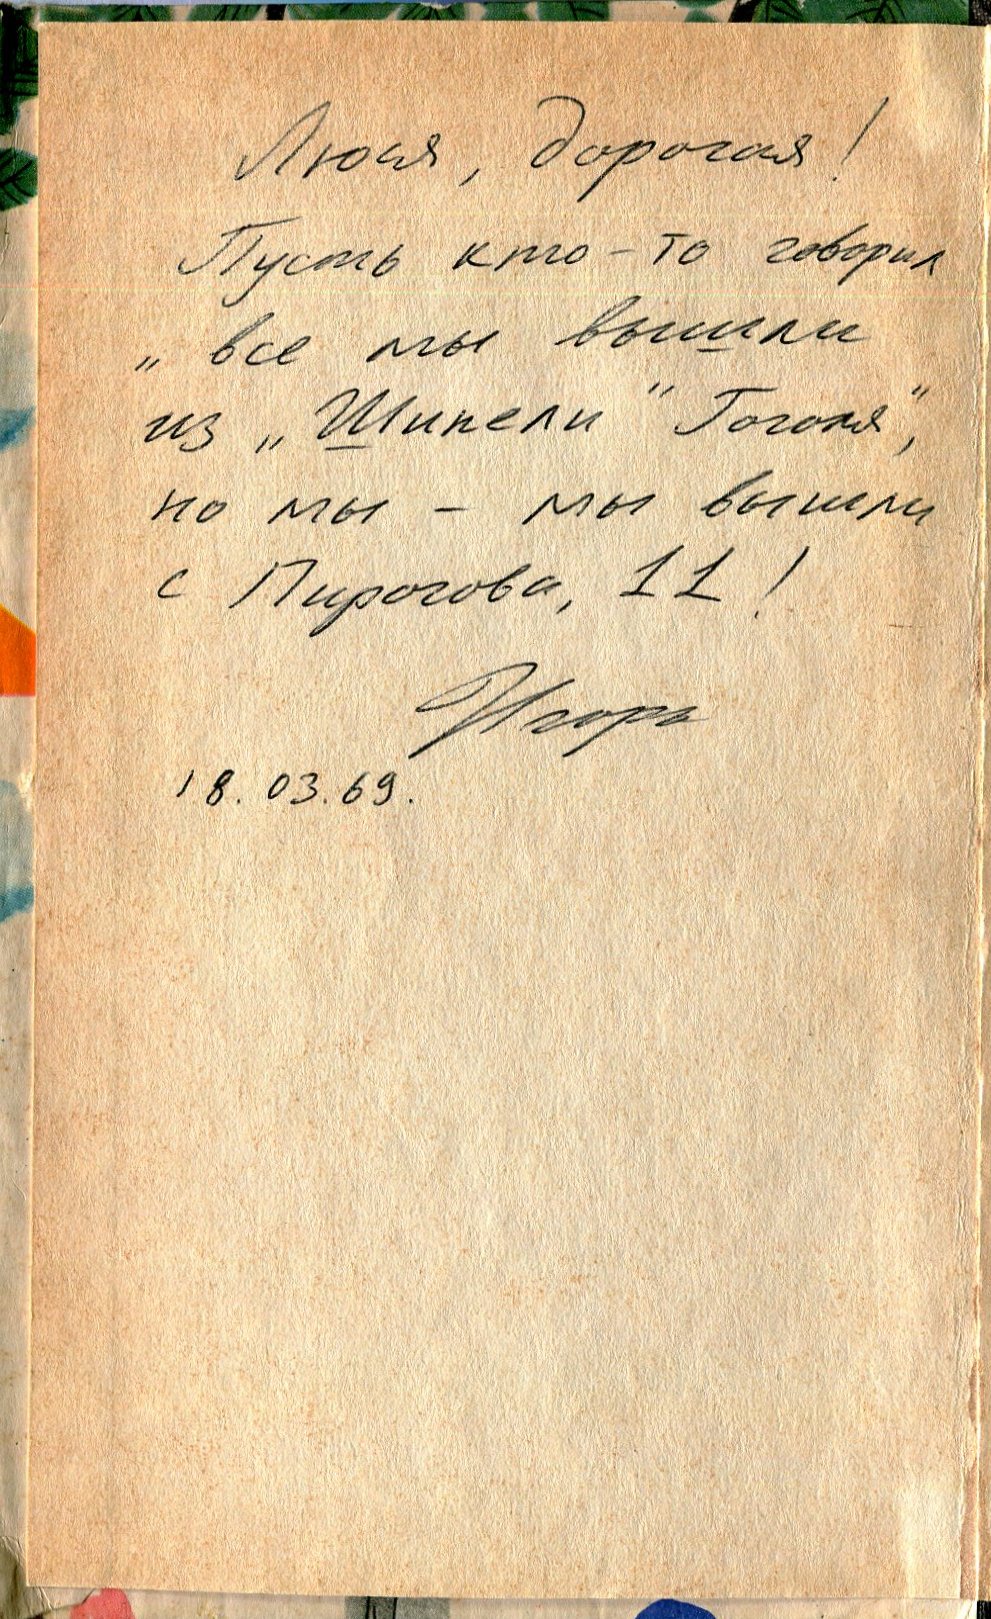 Люся, дорогая!
Пусть кто-то говорил
„все мы вышли
из „Шинели" Гоголя",
но мы - мы вышли
с Пирогова, 11!
Игорь
18.03.69.